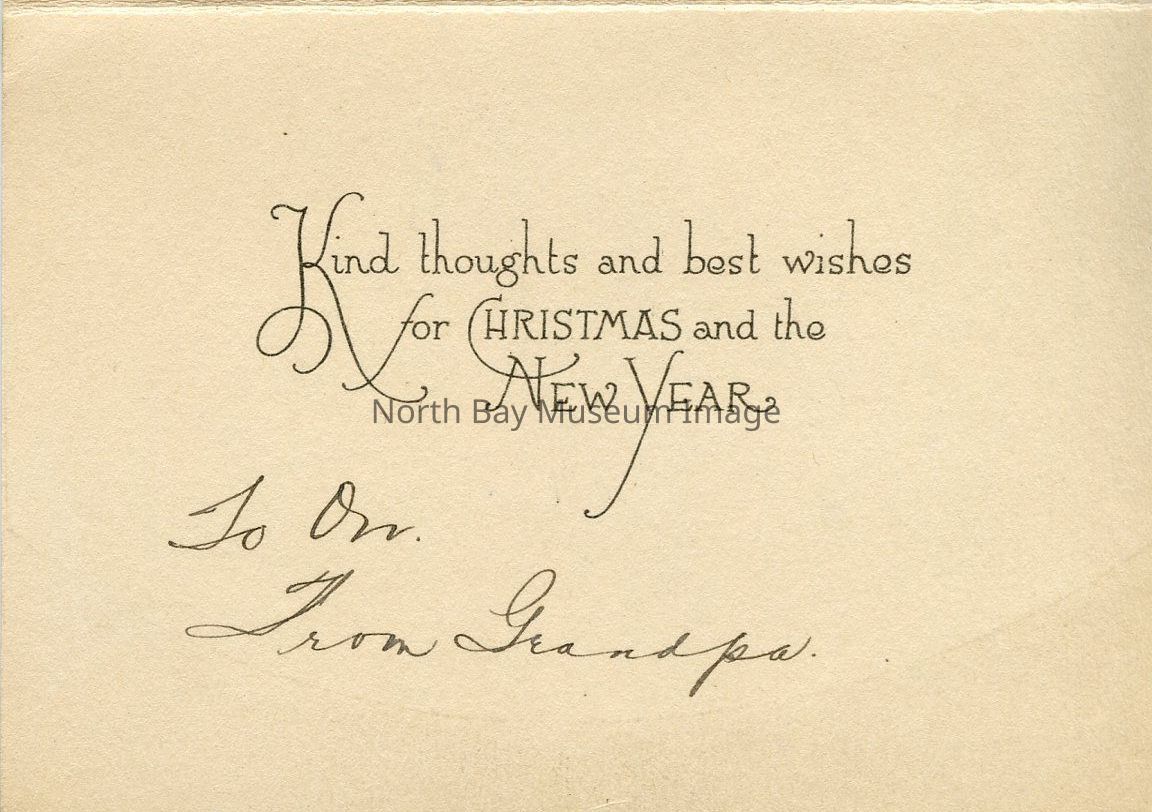 Kind thoughts and best wishes
for CHRISTMAS and the
NEW YEAR
North Bay Museum Image
To Orr.
From Grandpa.